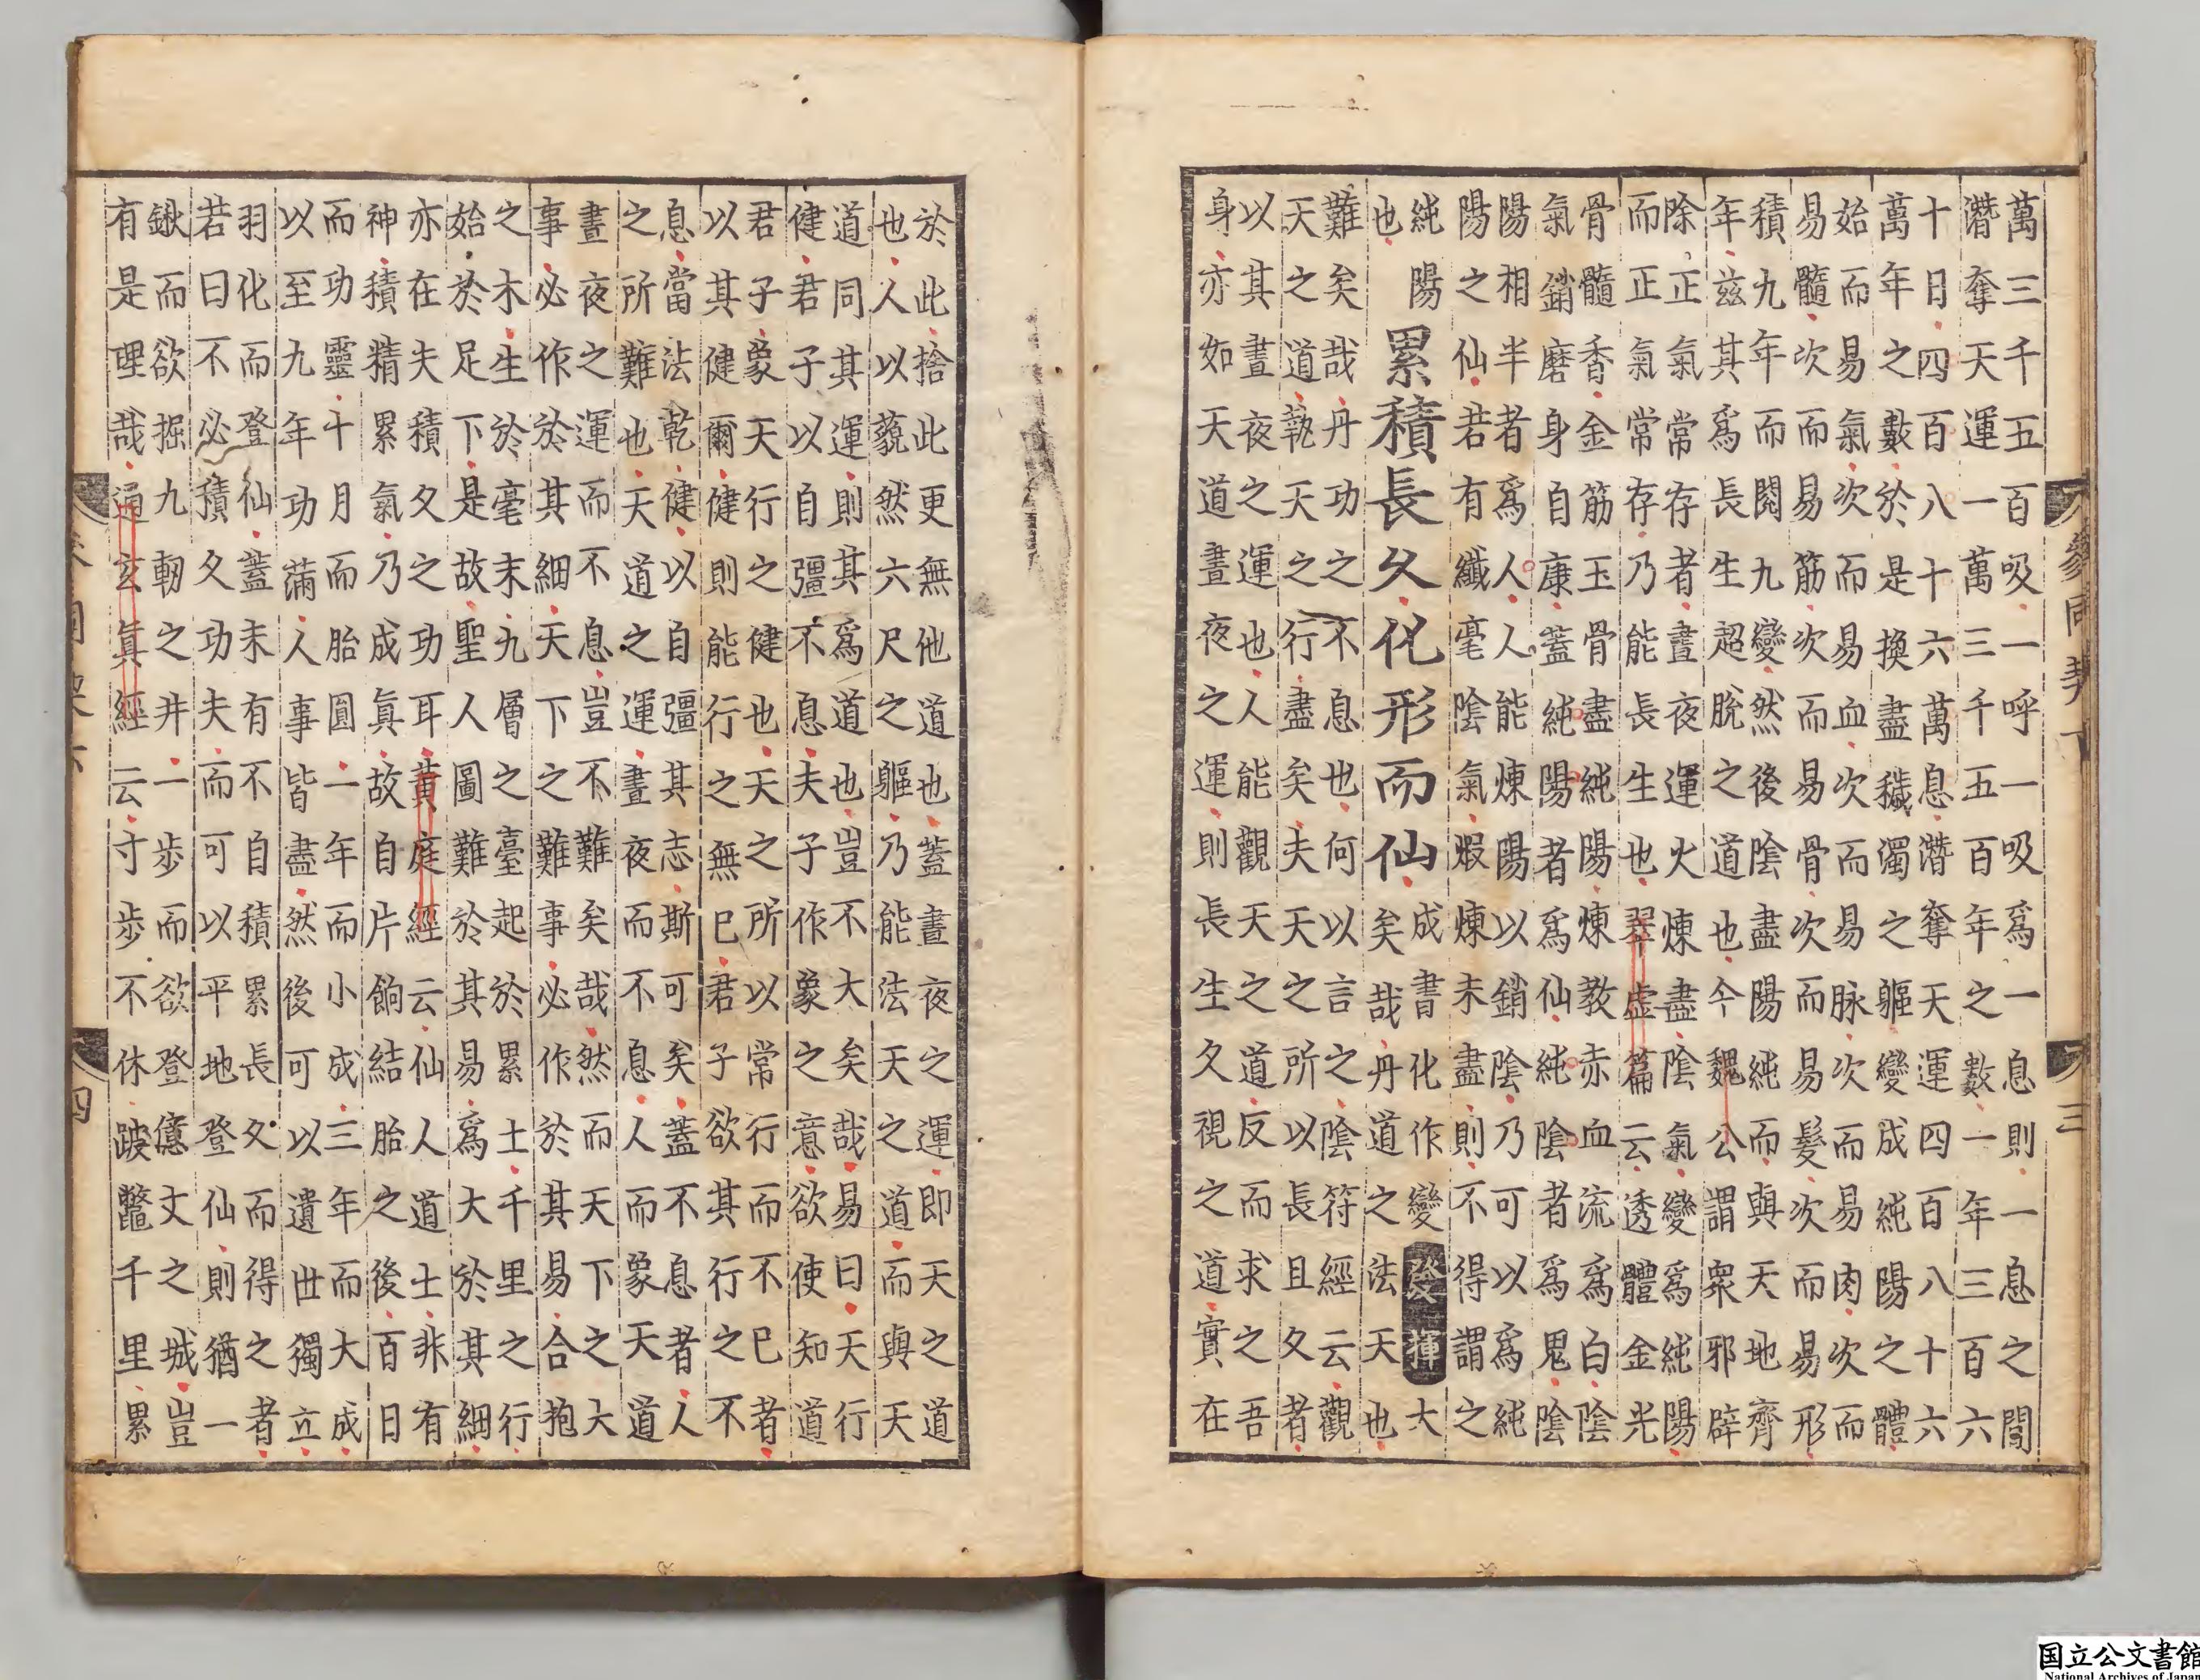 參同契下
三
萬三千五百吸一呼一吸爲一息則一息之間
潛奪天運一萬三千五百年之數一年三百六
十日四百八十六萬息潛奪天運四百八十六
萬年之數於是換盡穢濁之軀變成純陽之體
始而易氣次而易血次而易脉次而易肉次而
易髓次而易筋次而易骨次而易髮次而易形
積九年而閱九變然後陰盡陽純而與天地齊
年兹其爲長生超脫之道也今魏公謂衆邪辟
除正氣常存者晝夜運火煉盡陰氣變爲純陽
而正氣常存乃能長生也翠虛篇云透體金光
骨髓香金筋玉骨盡純陽煉教赤血流爲白陰
氣銷磨身自康蓋純陽者爲仙純陰者爲鬼陰
陽相半者爲人人能煉陽以銷陰乃可以爲純
陽之仙若有纖毫陰氣煆煉未盡則不得謂之
純陽
也
累積長久化形而仙
成書化作變發揮大
矣哉丹道之法天也
難矣哉丹功之不息也何以言之陰符經云觀
天之道執天之行盡矣夫天之所以長且久者
以其晝夜之運也人能觀天之道反而求之吾
身亦如天道晝夜之運則長生久視之道實在
於此捨此更無他道也蓋晝夜之運即天之道
也人以藐然六尺之軀乃能法天之道而與天
道同其運則其爲道也豈不大矣哉易曰天行
健君子以自彊不息夫子作象之意欲使知道
君子象天行之健也天之所以常行而不已者
以其健爾健則能行之無已君子欲其行之不
息當法乾健以自彊其志斯可矣蓋不息者人
之所難也天道之運晝夜而不息人而象天道
晝夜之運而不息豈不難矣哉然而天下之大
事必作於其細天下之難事必作於其易合抱
之木生於毫末九層之臺起於累土千里之行
始於足下是故聖人圖難於其易爲大於其細
亦在夫積久之功耳黃庭經云仙人道士非有
神積精累氣乃成眞故自片餉結胎之後百日
而功靈十月而胎圓一年而小成三年而大成
以至九年功滿人事皆盡然後可以遺世獨立
羽化而登仙蓋未有不自積累長久而得之者
若曰不必積久功夫而可以平地登仙則猶一
鍬而欲掘九軔之井一步而欲登億丈之城豈
有是理哉通玄眞經云寸步不休跛鼈千里累
四
国立公文書館
National Archives of Japan